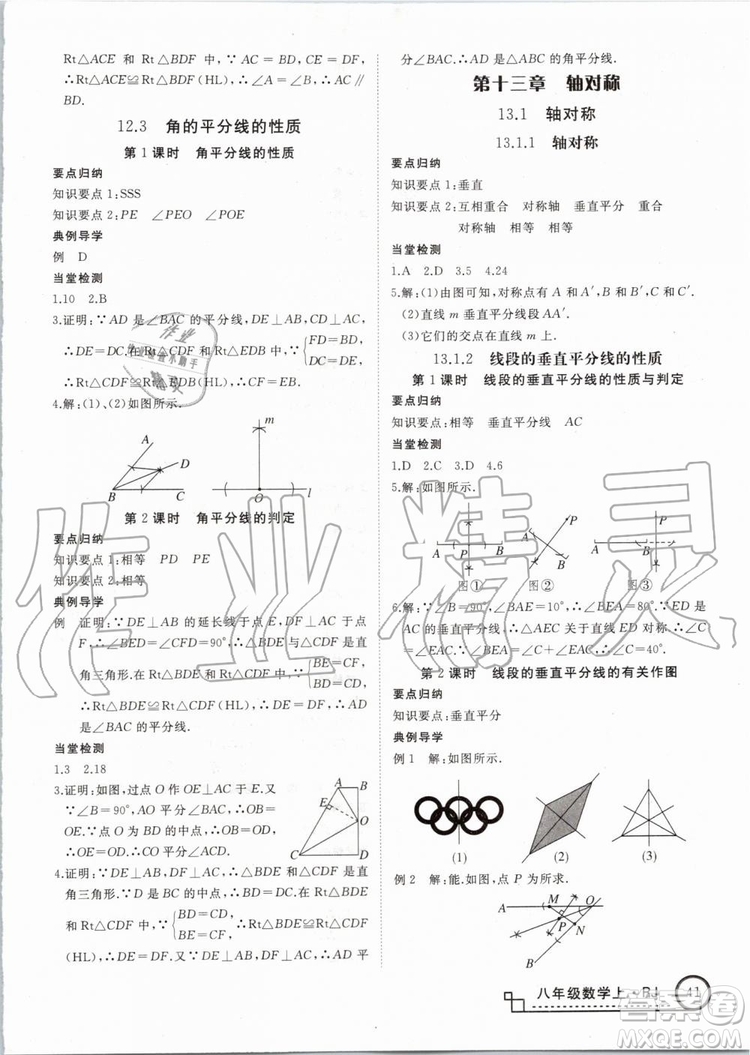 Rt△ACE 和 Rt△BDF 中,∵ AC = BD, CE = DF,
∴Rt△ACE≌Rt△BDF(HL),∴∠A=∠B,∴AC∥
BD.
12.3 角的平分线的性质
第1课时 角平分线的性质
要点归纳
知识要点1:SSS
知识要点2:PE ∠PEO ∠POE
典例导学
例 D
当堂检测
1.10 2.B
3.证明:∵AD是∠BAC的平分线,DE⊥AB,CD⊥
{FD=BD,
DC=DE,
∴Rt△CDF≌Rt△EDB(HL).∴CF=EB.
4.解:(1)、(2)如图所示.
A
D
B C
m
O l
第2课时 角平分线的判定
要点归纳
知识要点1:相等 PD PE
知识要点2:相等
典例导学
例 证明:∵DE⊥AB的延长线于点E,DF⊥AC于点
F,∴∠BED=∠CFD=90°,∴△BDE与△CDF是直
角三角形.在Rt△BDE和Rt△CDF中,{BE=CF,
BD=CD,
∴Rt△BDE≌Rt△CDF(HL),∴DE=DF,∴AD是
∠BAC的平分线.
当堂检测
1.3 2.18
3.证明:如图,过点O作OE⊥AC于E.
∵∠B=90°,AO平分∠BAC,∴OB=
OE.∵点O为BD的中点,∴OB=OD,
∴OE=OD.∵∠D=90°,OE⊥AC,
∴OC平分∠ACD.
A B
E
O
C D
4.证明:∵DE⊥AB,DF⊥AC,∴△BDE与△CDF是直
角三角形.∵D是BC的中点,∴BD=CD.在Rt△BDE
和Rt△CDF中,∵{BD=CD,
BE=CF,
∴Rt△BDE≌Rt△CDF
(HL),∴DE=DF.∵DE⊥AB,DF⊥AC,∴AD平
分∠BAC.∴AD是△ABC的角平分线.
第十三章 轴对称
13.1 轴对称
13.1.1 轴对称
要点归纳
知识要点1:垂直
知识要点2:互相重合 对称轴 垂直平分 重合
对称轴 相等 相等
当堂检测
1.A 2.D 3.5 4.24
5.解:(1)由图可知,对称点有A和A′,B和B′,C和C′.
(2)直线m垂直平分线段AA′.
(3)它们的交点在直线m上.
13.1.2 线段的垂直平分线的性质
第1课时 线段的垂直平分线的性质与判定
要点归纳
知识要点:相等 垂直平分线 AC
当堂检测
1.D 2.C 3.D 4.6
5.解:如图所示.
A P B
图①
P
A
B
图②
P
A B
图③
6.解:∵∠B=90°,∠BAE=10°,∴∠BEA=80°.∵ED是
AC的垂直平分线,∴△AEC关于直线ED对称,∴∠C
=∠EAC.∵∠BEA=∠C+∠EAC,∴∠C=40°.
第2课时 线段的垂直平分线的有关作图
要点归纳
知识要点:垂直平分
典例导学
例1 解:如图所示.
(1) (2) (3)
例2 解:能.如图,点P为所求.
A M O
P N
B
八年级数学上·RJ 41
作业精灵
答案卷
MXQE.COM